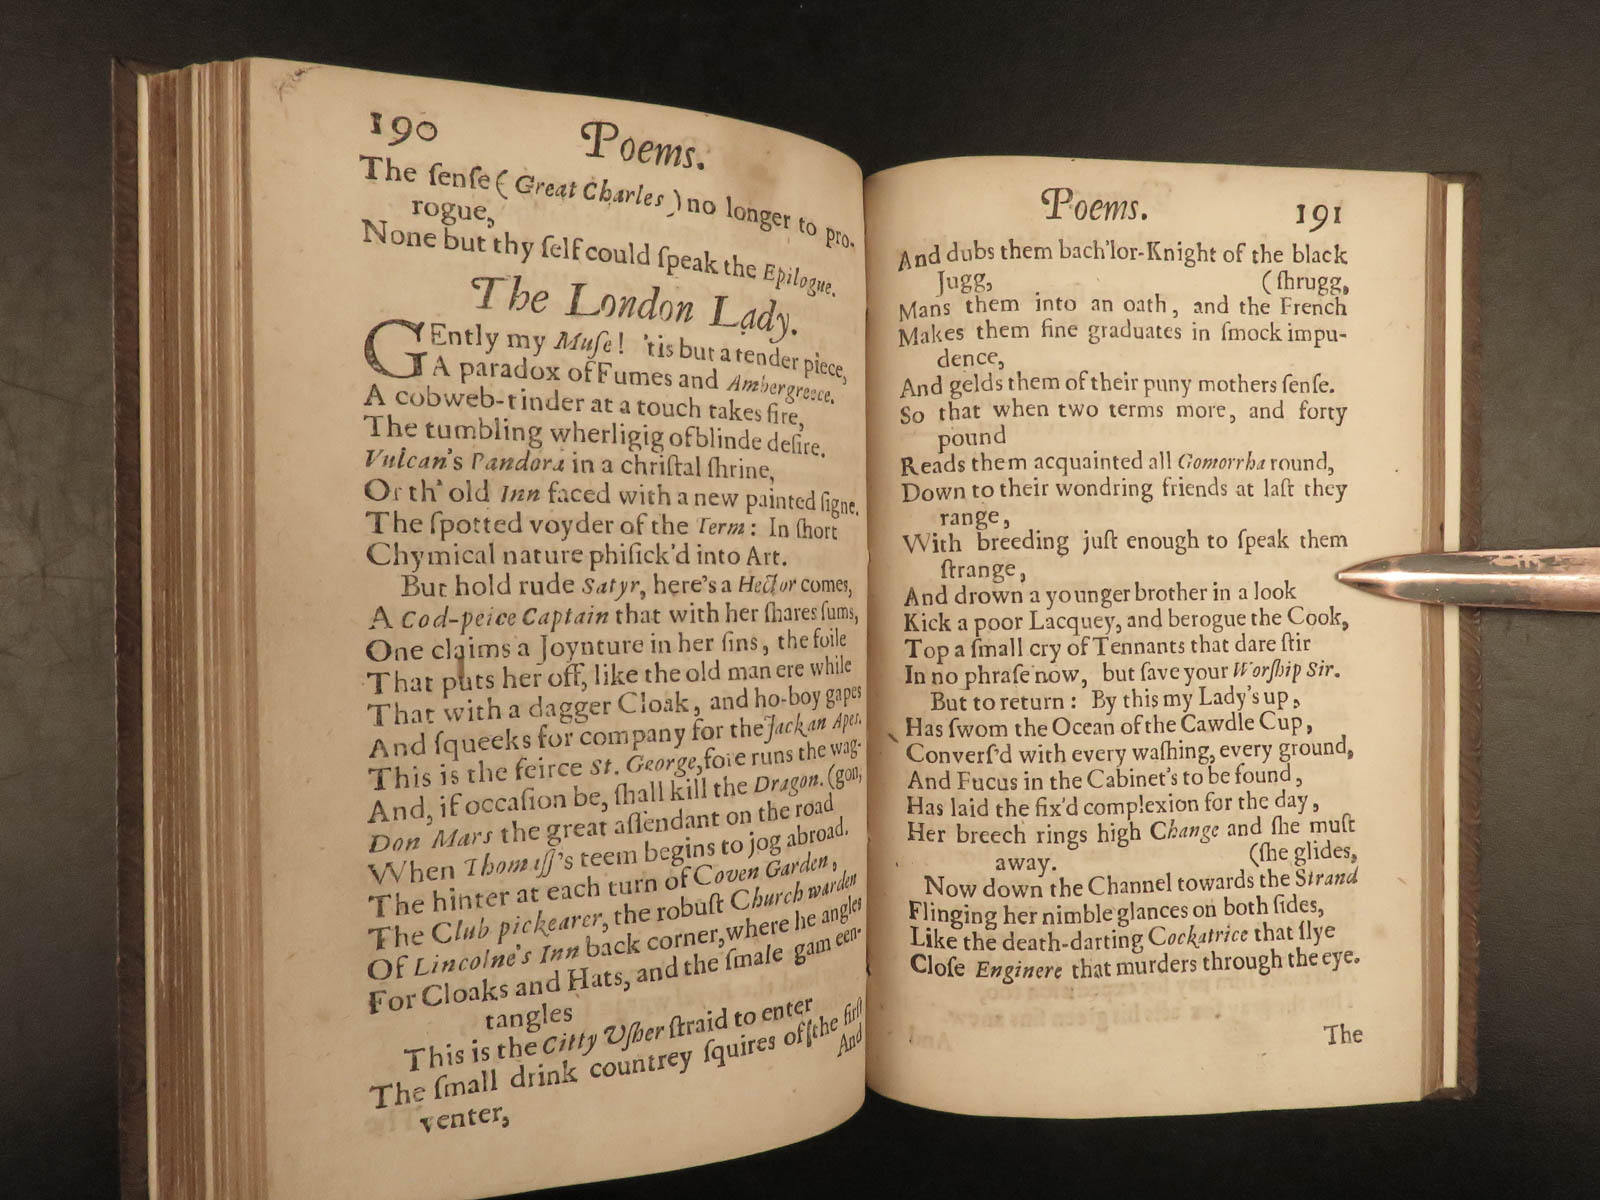 190
Poems.
The ſenſe ( Great Charles ) no longer to pro-
rogue,
None but thy ſelf could ſpeak the Epilogue.
The London Lady.
GEntly my Muſe! 'tis but a tender piece,
A paradox of Fumes and Ambergreece.
A cobweb-tinder at a touch takes fire,
The tumbling wherligig of blinde deſire.
Vulcan's Pandora in a chriſtal ſhrine,
Or th' old Inn faced with a new painted ſigne.
The ſpotted voyder of the Term: In ſhort
Chymical nature phiſick'd into Art.
But hold rude Satyr, here's a Hector comes,
A Cod-peice Captain that with her ſhares ſums,
One claims a Joynture in her ſins, the foile
That puts her off, like the old man ere while
That with a dagger Cloak, and ho-boy gapes
And ſqueeks for company for the Jackan Apes.
This is the feirce St. George, fore runs the wag-
And, if occaſion be, ſhall kill the Dragon. (gon,
Don Mars the great aſſendant on the road
When Thomaſſ's teem begins to jog abroad.
The hinter at each turn of Coven Garden,
The Club pickearer, the robuſt Church warden
Of Lincolne's Inn back corner, where he angles
For Cloaks and Hats, and the ſmale gam een-
tangles
This is the Citty Uſher ſtraid to enter
The ſmall drink countrey ſquires of the firſt
venter,
And
Poems.
191
And dubs them bach'lor-Knight of the black
Jugg, (ſhrugg,
Mans them into an oath, and the French
Makes them fine graduates in ſmock impu-
dence,
And gelds them of their puny mothers ſenſe.
So that when two terms more, and forty
pound
Reads them acquainted all Gomorrha round,
Down to their wondring friends at laſt they
range,
With breeding juſt enough to ſpeak them
ſtrange,
And drown a younger brother in a look
Kick a poor Lacquey, and berogue the Cook,
Top a ſmall cry of Tennants that dare ſtir
In no phraſe now, but ſave your Worſhip Sir.
But to return: By this my Lady's up,
Has ſwom the Ocean of the Cawdle Cup,
Converſ'd with every waſhing, every ground,
And Fucus in the Cabinet's to be found,
Has laid the fix'd complexion for the day,
Her breech rings high Change and ſhe muſt
away. (ſhe glides,
Now down the Channel towards the Strand
Flinging her nimble glances on both ſides,
Like the death-darting Cockatrice that ſlye
Cloſe Enginere that murders through the eye.
The